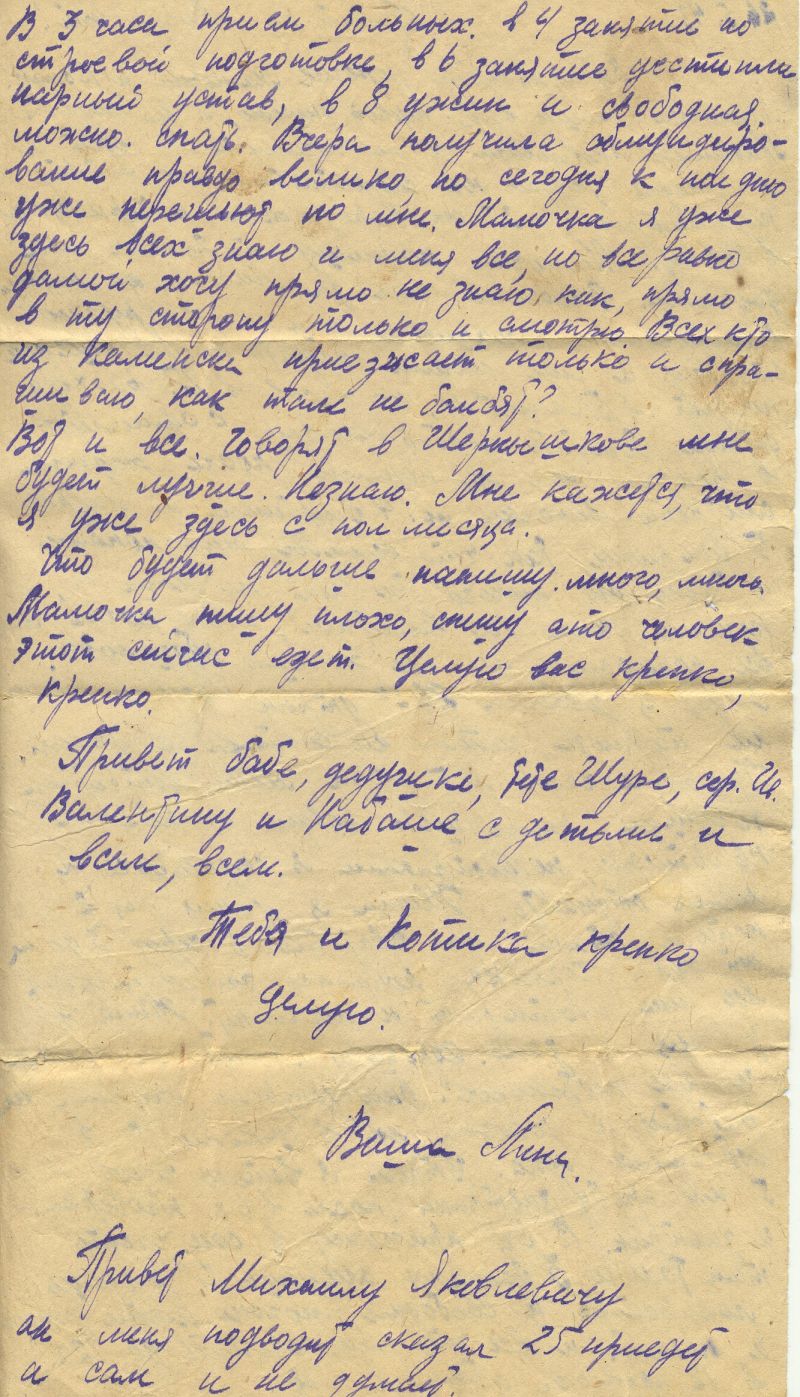 В 3 часа прием больных. в 4 занятие по
строевой подготовке, в 6 занятие дисципли
нарный устав, в 8 ужин и свободная.
можно. спать. Вчера получила обмундиро-
вание правдо велико, но сегодня к
уже перешьют по мне. Мамочка я уже
здесь всех знаю и меня все, но все равно
домой хочу прямо не знаю как, прямо
в ту сторону только и смотрю. Всех кто
из Каменска приезжает только и спра-
шиваю, как там не бомбят?
Вот и все. Говорят в Чернышкове мне
будет лучше. Незнаю. Мне кажется, что
я уже здесь с пол месяца.
Что будет дальше напишу. много, много.
Мамочка пишу плохо, спешу ато человек
этот сейчас едет. Целую вас крепко,
крепко.
Привет бабе, дедушке, тете Шуре,
Валентину и с детьми и
всем, всем.
Тебя и Котика крепко
целую.
Ваша Лина.
Привет Михаилу Яковлевичу
он меня подводит сказал 25 приедет
а сам и не думает.